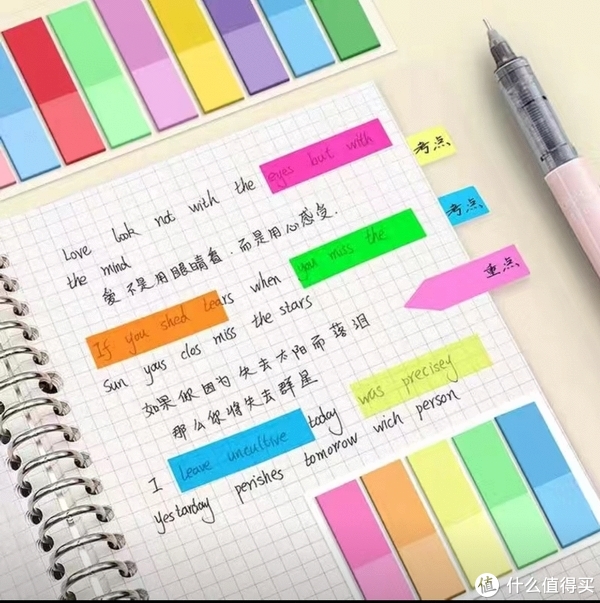 Love look not with the eyes but with
考点
the mind
考点
爱不是用眼睛看.而是用心感受.
重点
If you shed tears when you miss the
Sun yous clos miss the stars
如果你因为失去太阳而落泪
那么你将失去群星
I leave uncultive today was precisey
yestarday perishes tomorrow wich person
值 什么值得买